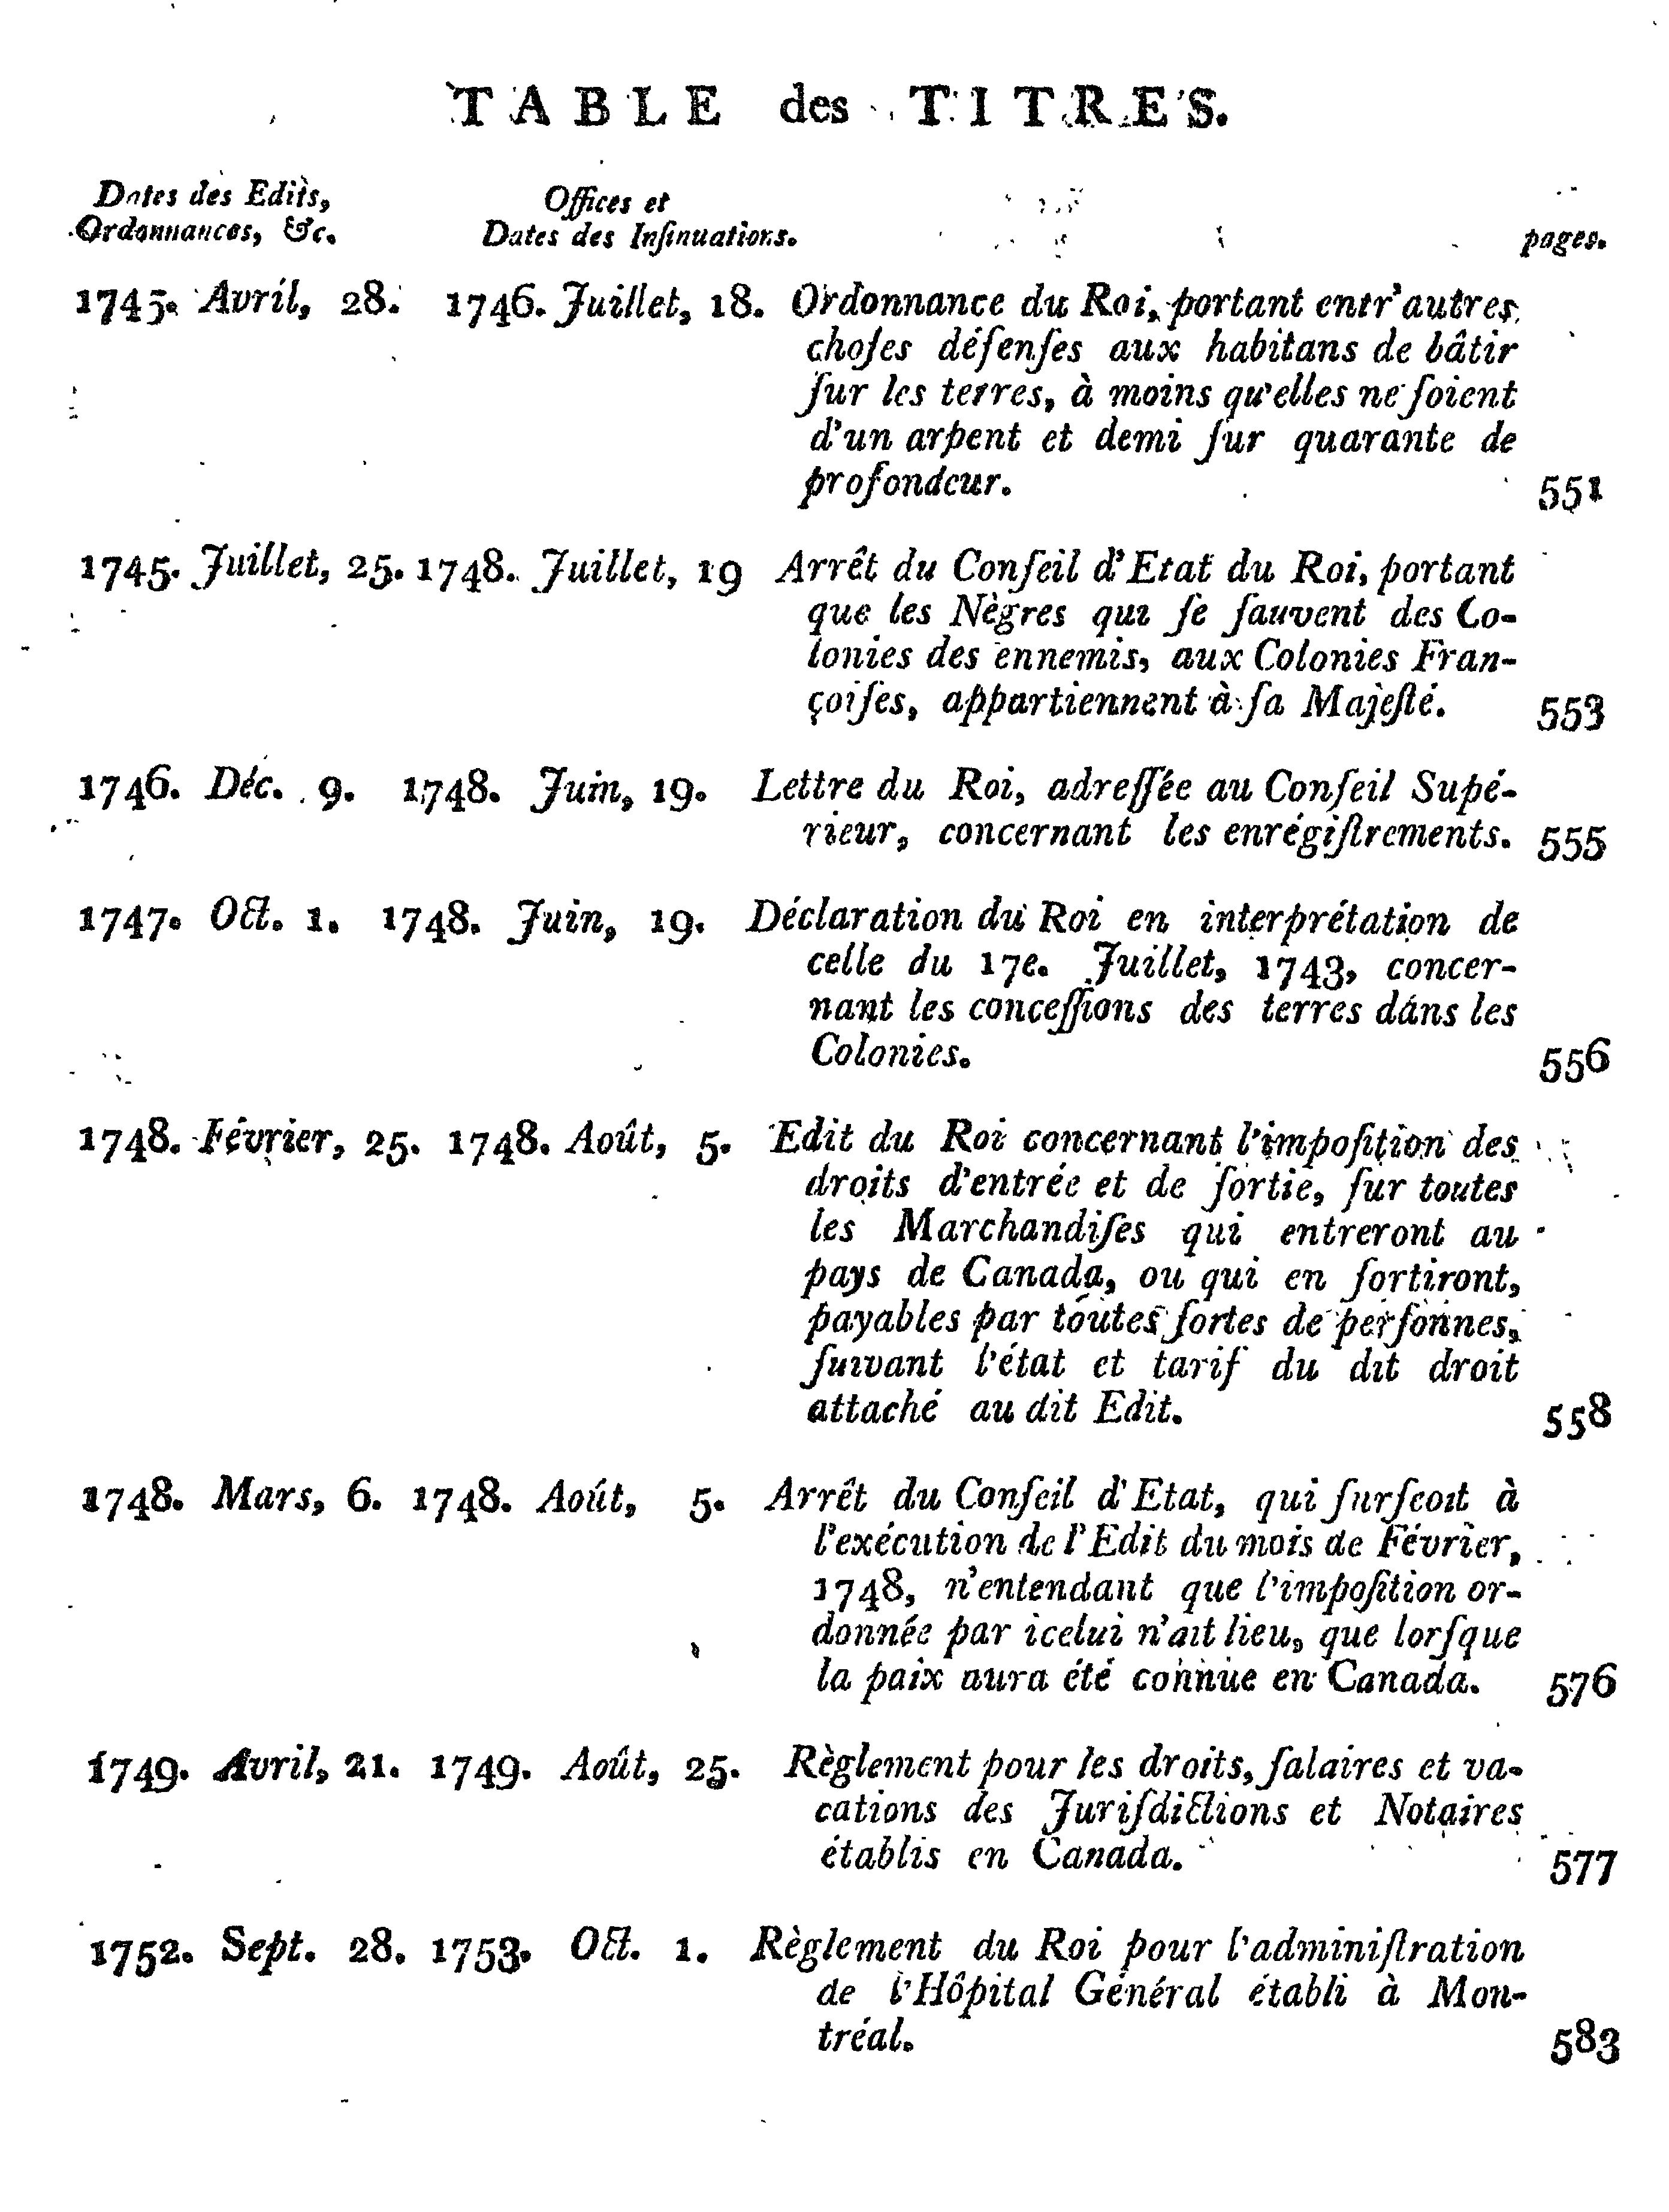 TABLE des TITRES.
Dates des Edits, Offices et
Ordonnances, &c. Dates des Inſinuations. pages.
1745. Avril, 28. 1746. Juillet, 18. Ordonnance du Roi, portant entr'autres
choſes défenſes aux habitans de bâtir
ſur les terres, à moins qu'elles ne ſoient
d'un arpent et demi ſur quarante de
profondeur. 551
1745. Juillet, 25. 1748. Juillet, 19 Arrêt du Conſeil d'Etat du Roi, portant
que les Nègres qui ſe ſauvent des Co-
lonies des ennemis, aux Colonies Fran-
çoiſes, appartiennent à ſa Majeſté. 553
1746. Déc. 9. 1748. Juin, 19. Lettre du Roi, adreſſée au Conſeil Supé-
rieur, concernant les enrégiſtrements. 555
1747. Oct. 1. 1748. Juin, 19. Déclaration du Roi en interprétation de
celle du 17e. Juillet, 1743, concer-
nant les conceſſions des terres dans les
Colonies. 556
1748. Février, 25. 1748. Août, 5. Edit du Roi concernant l'impoſition des
droits d'entrée et de ſortie, ſur toutes
les Marchandiſes qui entreront au
pays de Canada, ou qui en ſortiront,
payables par toutes ſortes de perſonnes,
ſuivant l'état et tarif du dit droit
attaché au dit Edit. 558
1748. Mars, 6. 1748. Août, 5. Arrêt du Conſeil d'Etat, qui ſurſeoit à
l'exécution de l'Edit du mois de Février,
1748, n'entendant que l'impoſition or-
donnée par icelui n'ait lieu, que lorſque
la paix aura été connue en Canada. 576
1749. Avril, 21. 1749. Août, 25. Règlement pour les droits, ſalaires et va-
cations des Juriſdictions et Notaires
établis en Canada. 577
1752. Sept. 28. 1753. Oct. 1. Règlement du Roi pour l'adminiſtration
de l'Hôpital Général établi à Mon-
tréal. 583